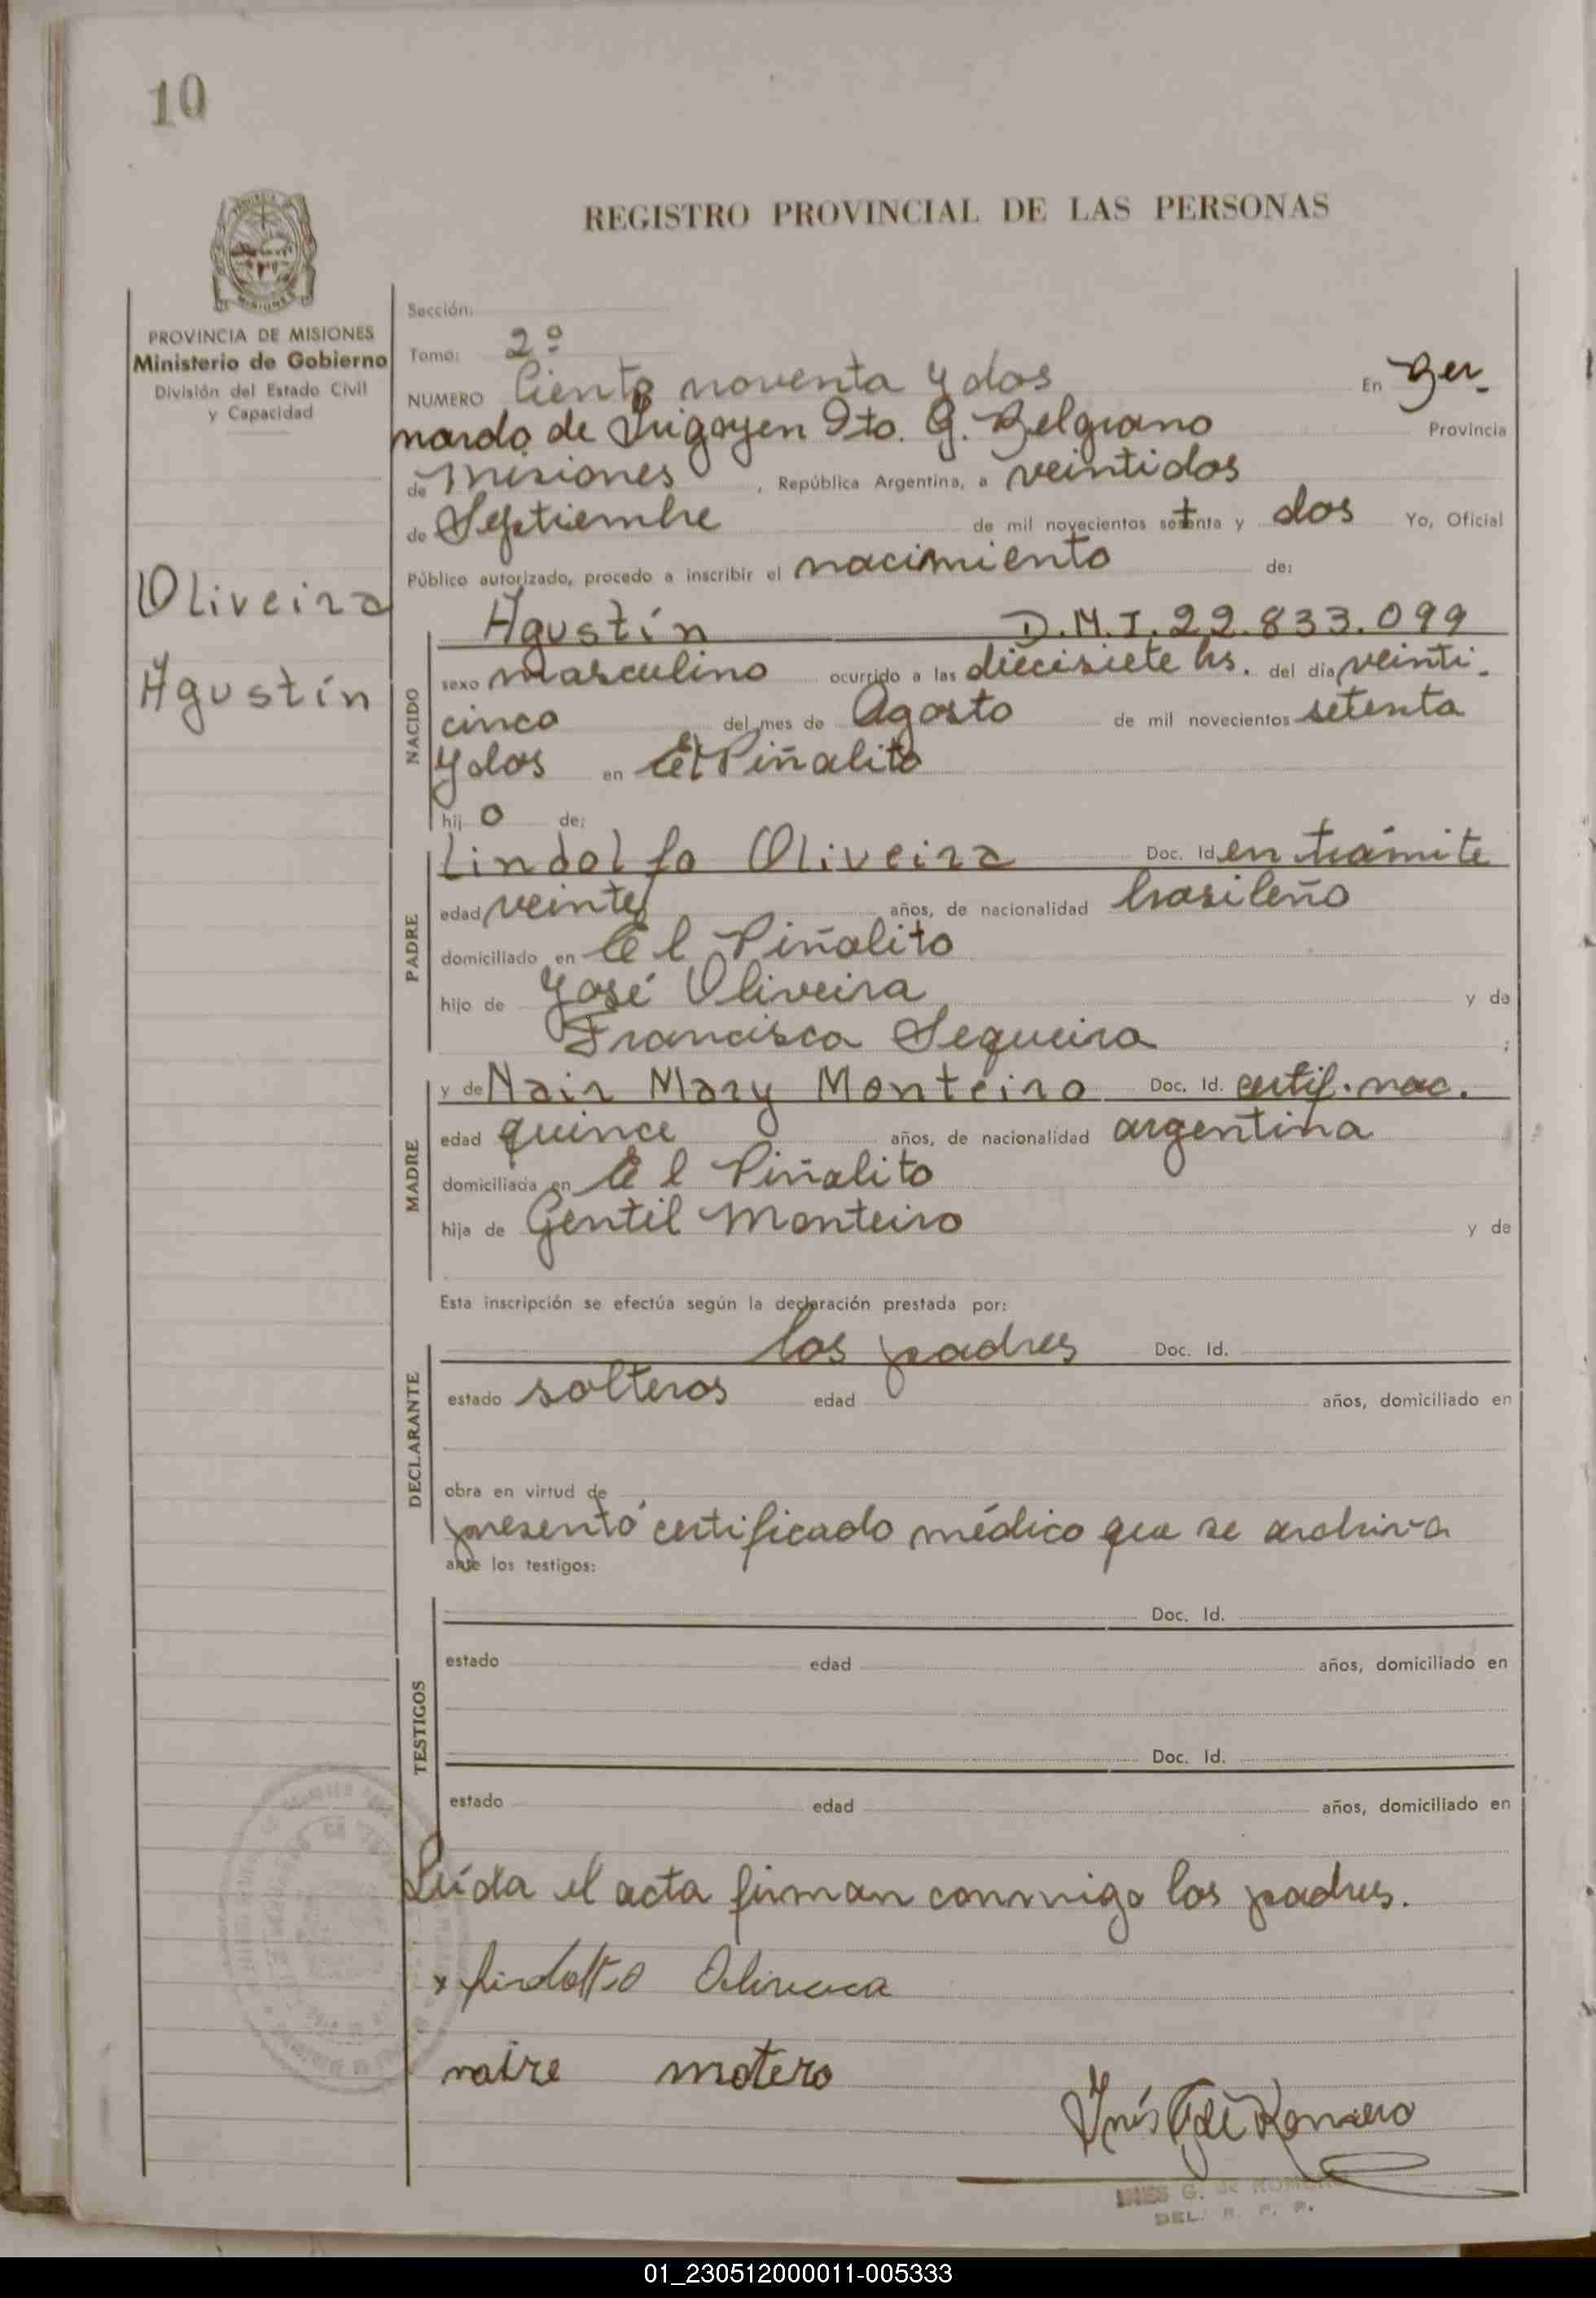 10
REGISTRO PROVINCIAL DE LAS PERSONAS
PROVINCIA DE MISIONES
Ministerio de Gobierno
División del Estado Civil
y Capacidad
Oliveira
Agustín
Sección:
Tomo: 2º
NUMERO Ciento noventa y dos En Ber-
nardo de Irigoyen Dto. G. Belgrano Provincia
de Misiones, República Argentina, a veintidos
de Septiembre de mil novecientos setenta y dos Yo, Oficial
Público autorizado, procedo a inscribir el nacimiento de:
NACIDO
Agustín D.N.I. 22.833.099
sexo masculino ocurrido a las diecisiete hs. del día veinti-
cinco del mes de Agosto de mil novecientos setenta
y dos en El Piñalito
hij o de:
PADRE
Lindolfo Oliveira Doc. Id. en trámite
edad veinte años, de nacionalidad brasileño
domiciliado en El Piñalito
hijo de José Oliveira y de
Francisca Sequeira ;
MADRE
y de Nair Mary Monteiro Doc. Id. certif. nac.
edad quince años, de nacionalidad argentina
domiciliada en El Piñalito
hija de Gentil Monteiro y de
Esta inscripción se efectúa según la declaración prestada por:
DECLARANTE
los padres Doc. Id.
estado solteros edad años, domiciliado en
obra en virtud de
presentó certificado médico que se archiva
ante los testigos:
TESTIGOS
Doc. Id.
estado edad años, domiciliado en
Doc. Id.
estado edad años, domiciliado en
Leída el acta firman conmigo los padres.
x Lindolfo Oliveira
naire motero
Inés G de Romero
INES G. de ROMERO
DEL. R. P. P.
01_230512000011-005333